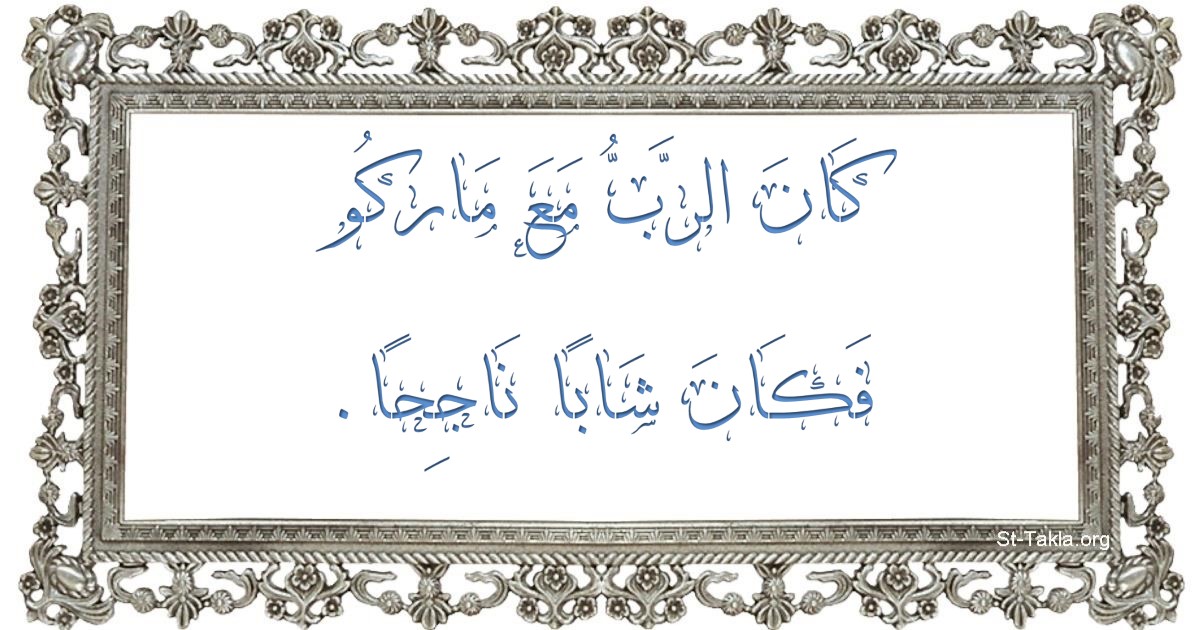 كَانَ الرَّبُّ مَعَ مَاركُو
فَكَانَ شَابًا نَاجِحًا .
St-Takla.org